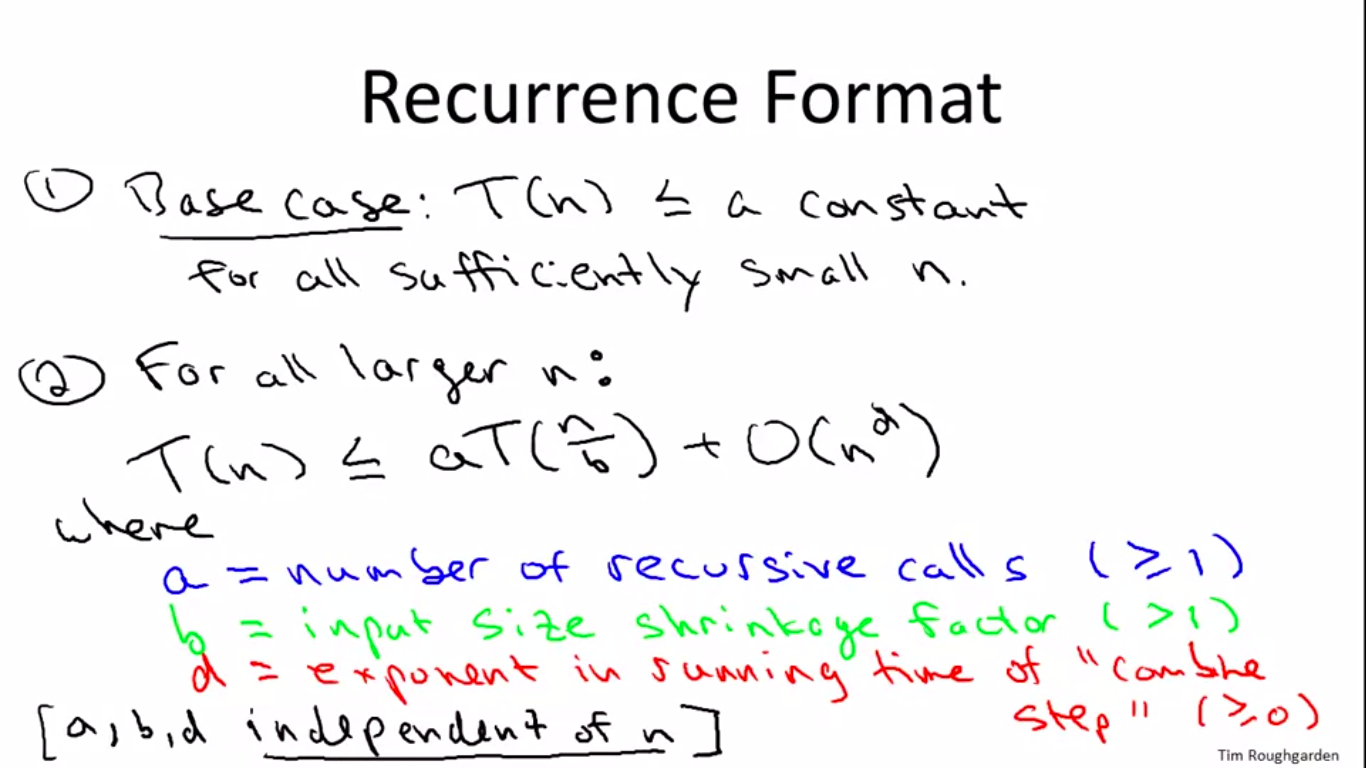 Recurrence Format
① Base case: T(n) ≤ a constant
for all sufficiently small n.
② For all larger n:
T(n) ≤ aT(n/b) + O(n^d)
where
a = number of recursive calls (≥1)
b = input size shrinkage factor (>1)
d = exponent in running time of "combine
step" (≥0)
[a,b,d independent of n]
Tim Roughgarden